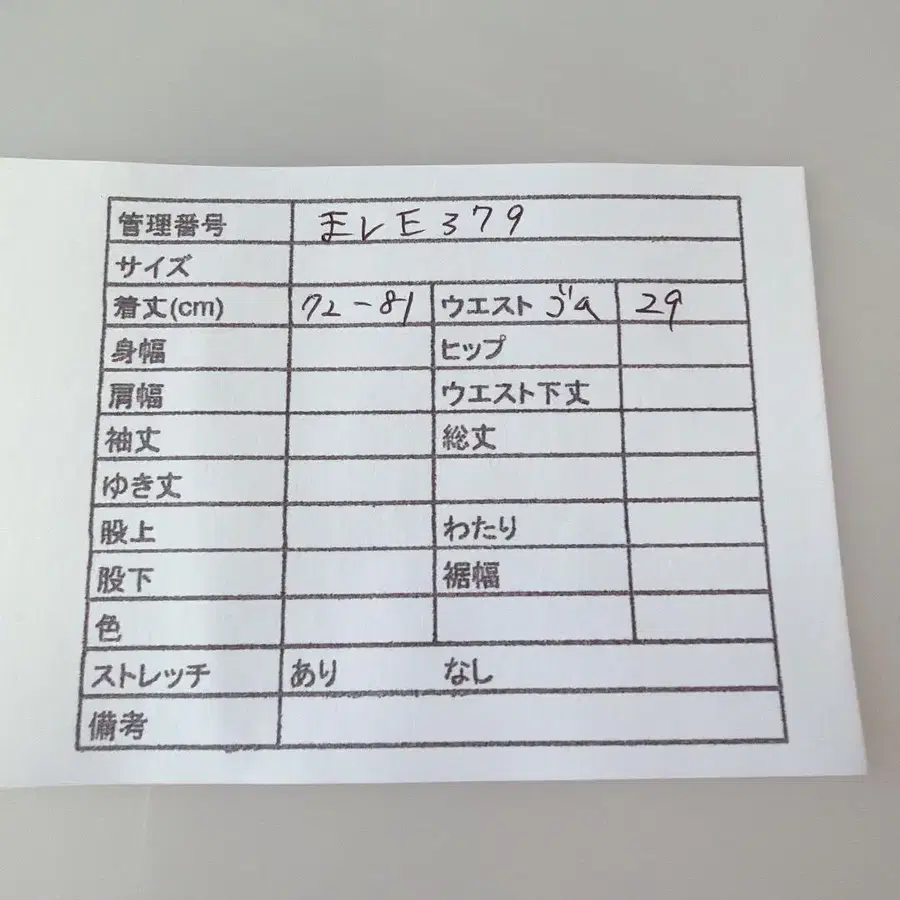 管理番号 まレE379
サイズ
着丈(cm) 72-81 ウエスト ゴム 29
身幅 ヒップ
肩幅 ウエスト下丈
袖丈 総丈
ゆき丈
股上 わたり
股下 裾幅
色
ストレッチ あり なし
備考